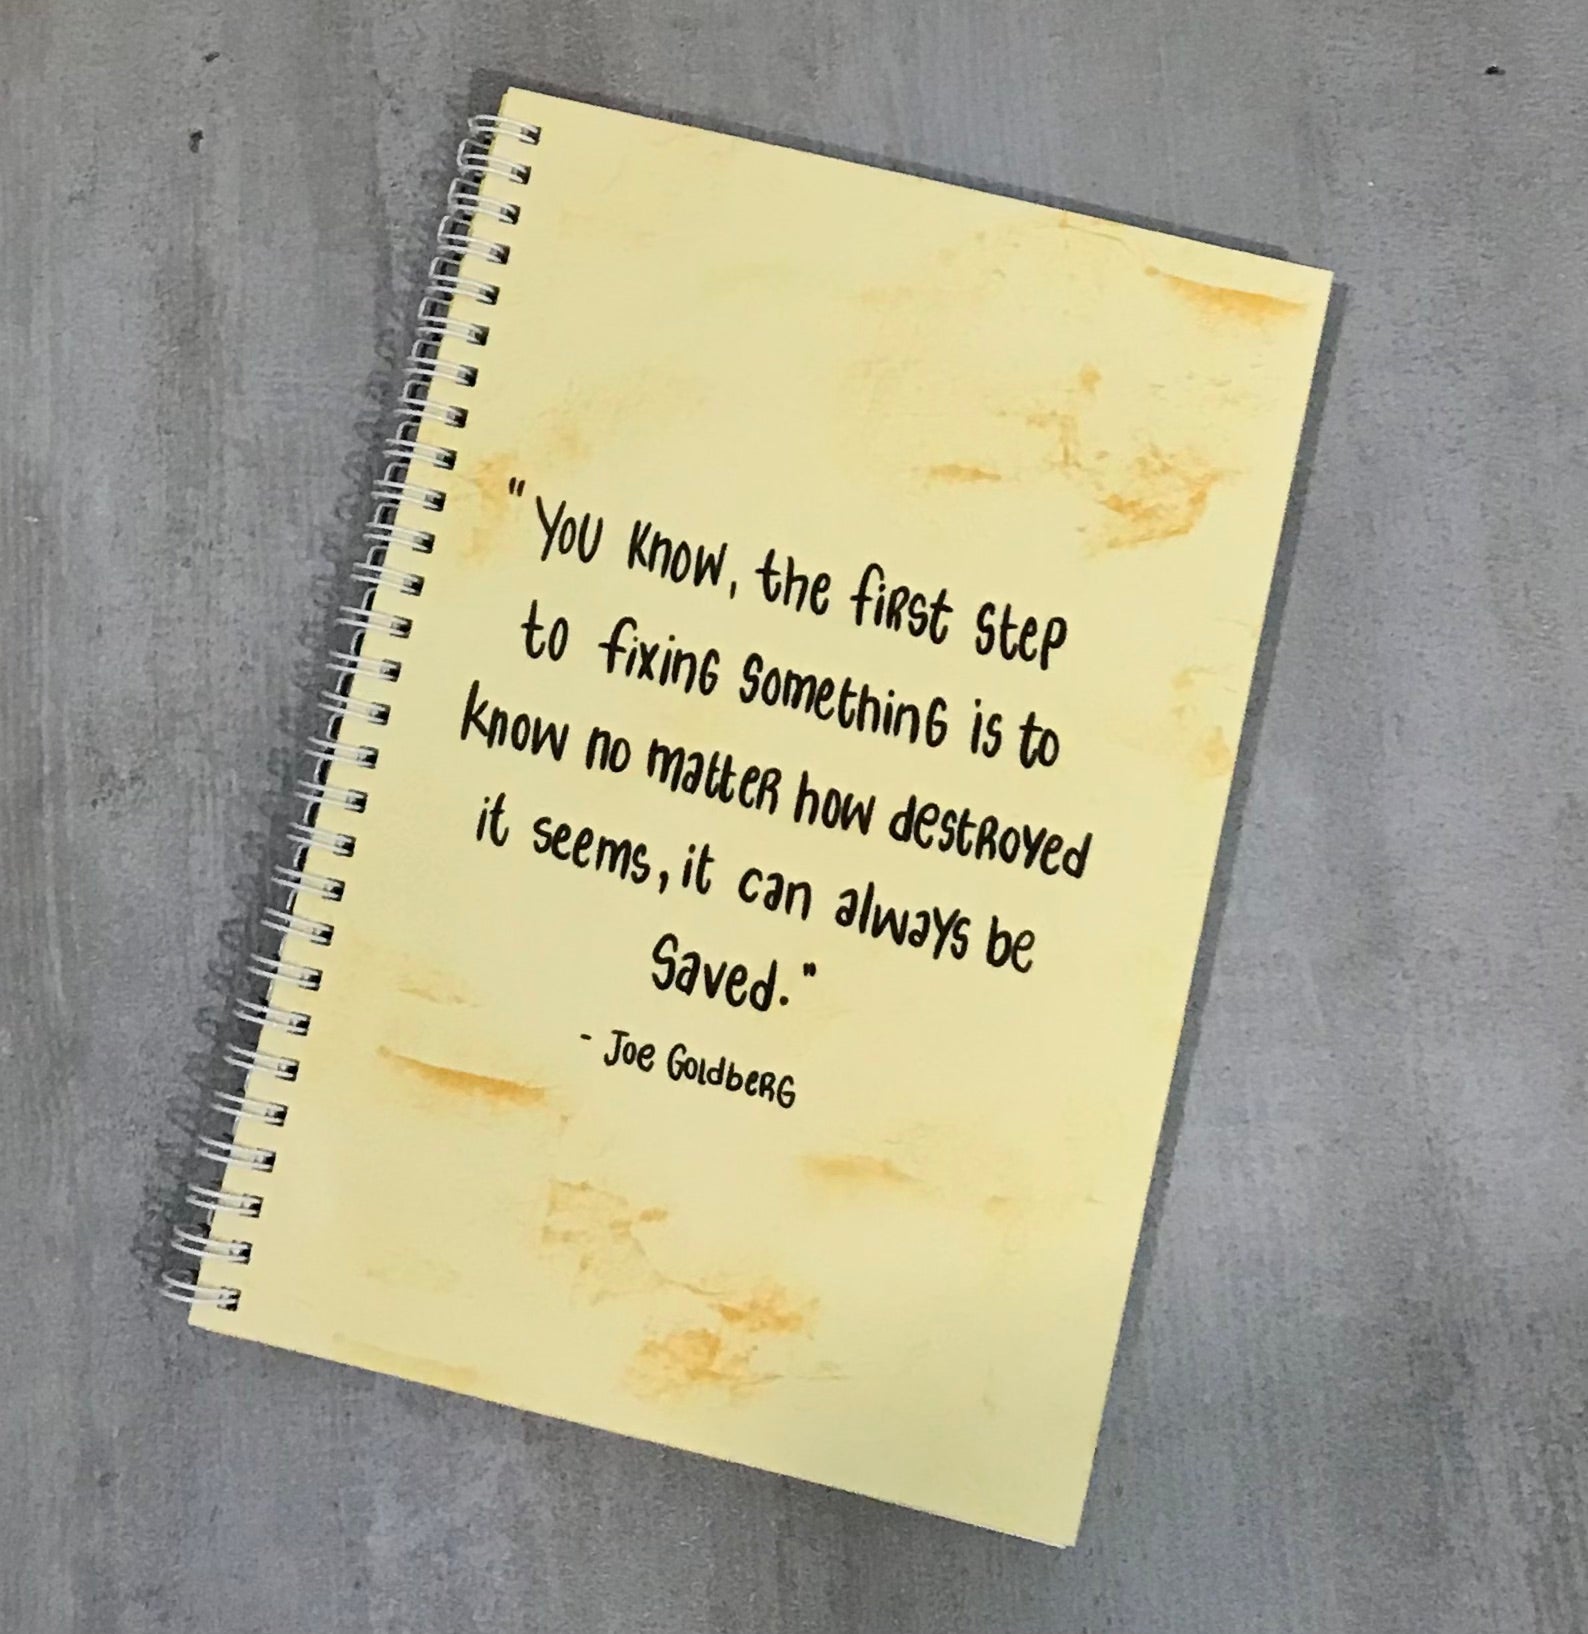 "You know, the first step
to fixing something is to
know no matter how destroyed
it seems, it can always be
saved."
- Joe Goldberg